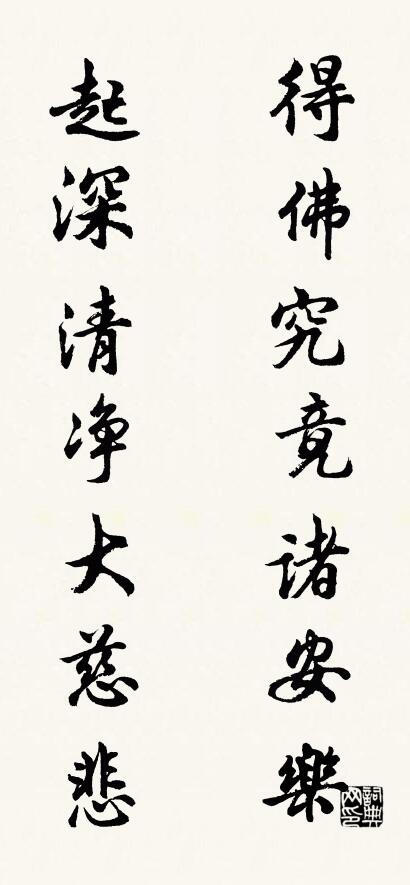 得佛究竟諸安樂
起深清净大慈悲
詞典网印